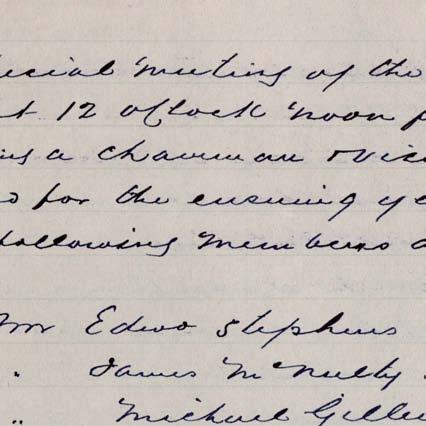 ecial meeting of the
at 12 o'Clock noon f
ing a chairman & vice
s for the ensuing ye
following members a
Mr Edwd Stephens
" James McNulty
" Michael Gille